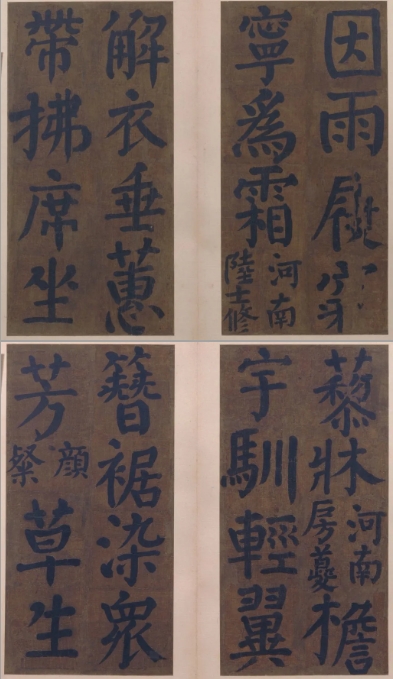 因雨履穿
寧爲霜
河南
陸士修
解衣垂蕙
帶拂席坐
藜牀
河南
房夔
檐
宇馴輕翼
簪裾染衆
芳
顏
粲
草生